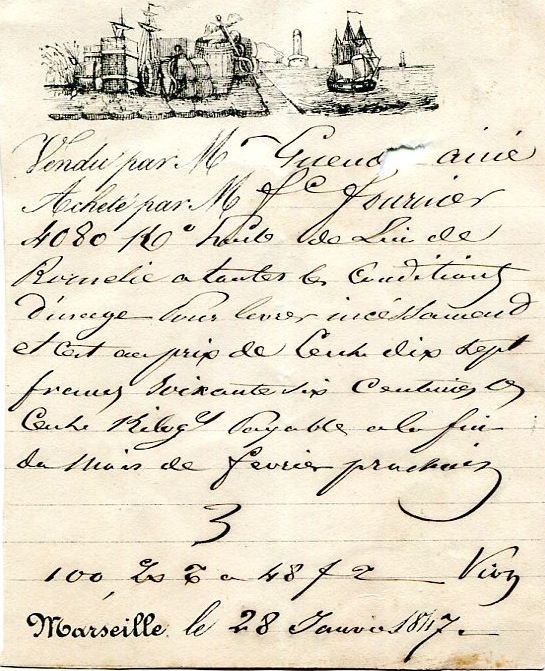 Vendu par M Guend aîné
Acheté par M Jh Fournier
4080 Ko huile de Lin de
Romelie a toutes les Conditions
d'usage Pour livrer incéssamend
et cet au prix de Cent dix sept
francs Soixante six Centimes les
Cent Kilogs Payable a la fin
du mois de fevrier prochain
3
100 a 48 f 2
Marseille. le 28 Janvier 1847.